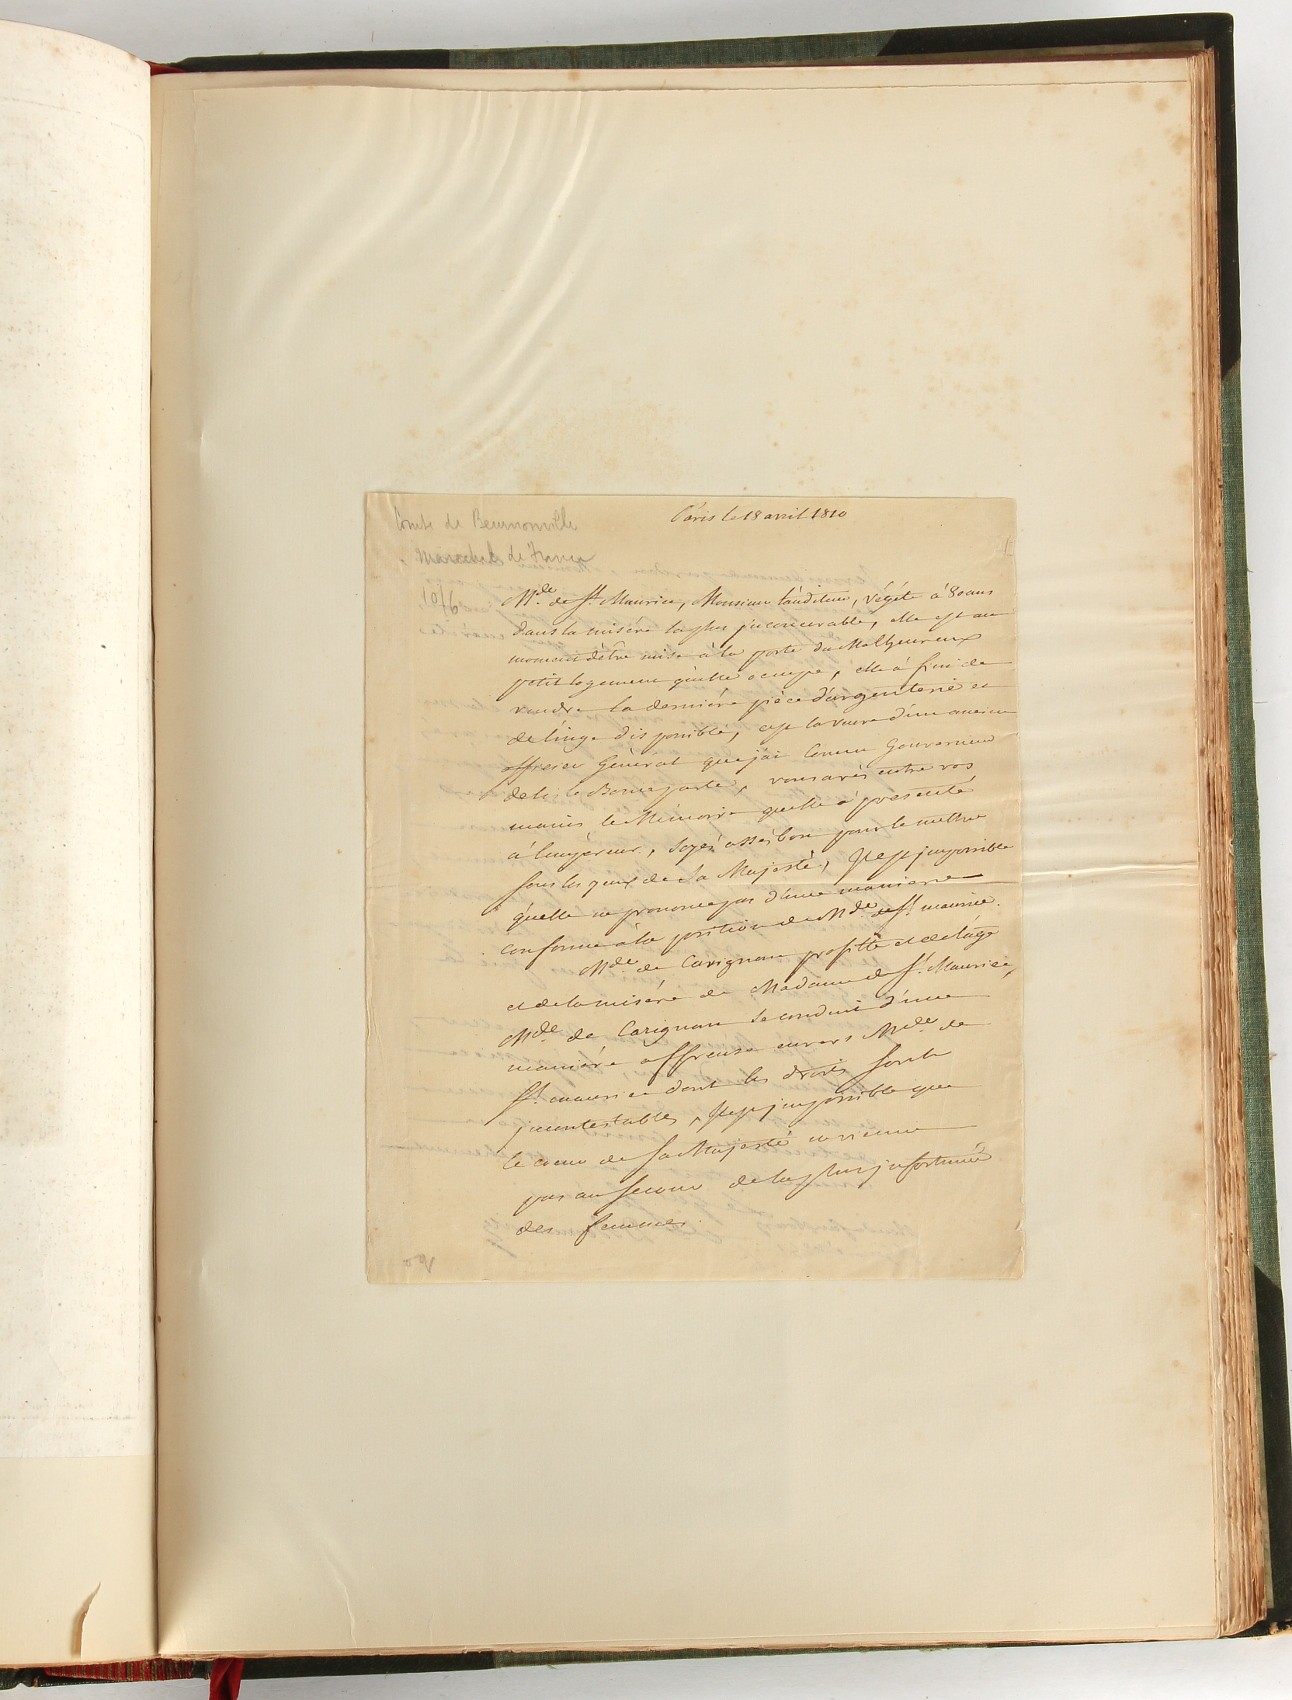 Comte de Beurnonville
Maréchal de France
Paris le 18 avril 1810
Mde de St. Maurice, Monsieur l'auditeur, végéte à 80 ans
dans la misére la plus jnconcevable, elle est au
moment d'être mise à la porte du Malheureux
petit logement qu'elle occupe, elle à fini de
vendre la derniére piéce d'argenterie et
de linge disponible, c'est la veuve d'un ancien
officier Géneral que j'ai Connu Gouverneur
de l'isle Bonaparte, vous avés entre vos
mains le Mémoire qu'elle à presenté
à l'empereur, soyés assés bon pour le mettre
sous les yeux de Sa Majesté, Jl est jmpossible
qu'elle ne prononce pas d'une maniere
conforme à la position de Mde de St. maurice.
Mde de Carignan profitte et de l'âge
et de la misére de Madame de St. Maurice,
Mde de Carignan se conduit d'une
maniére affreuse envers Mde de
St. maurice dont les droits sont
jncontestables, Jl est jmpossible que
le coeur de Sa Majesté ne vienne
pas au secours de la plus jnfortunée
des femmes.